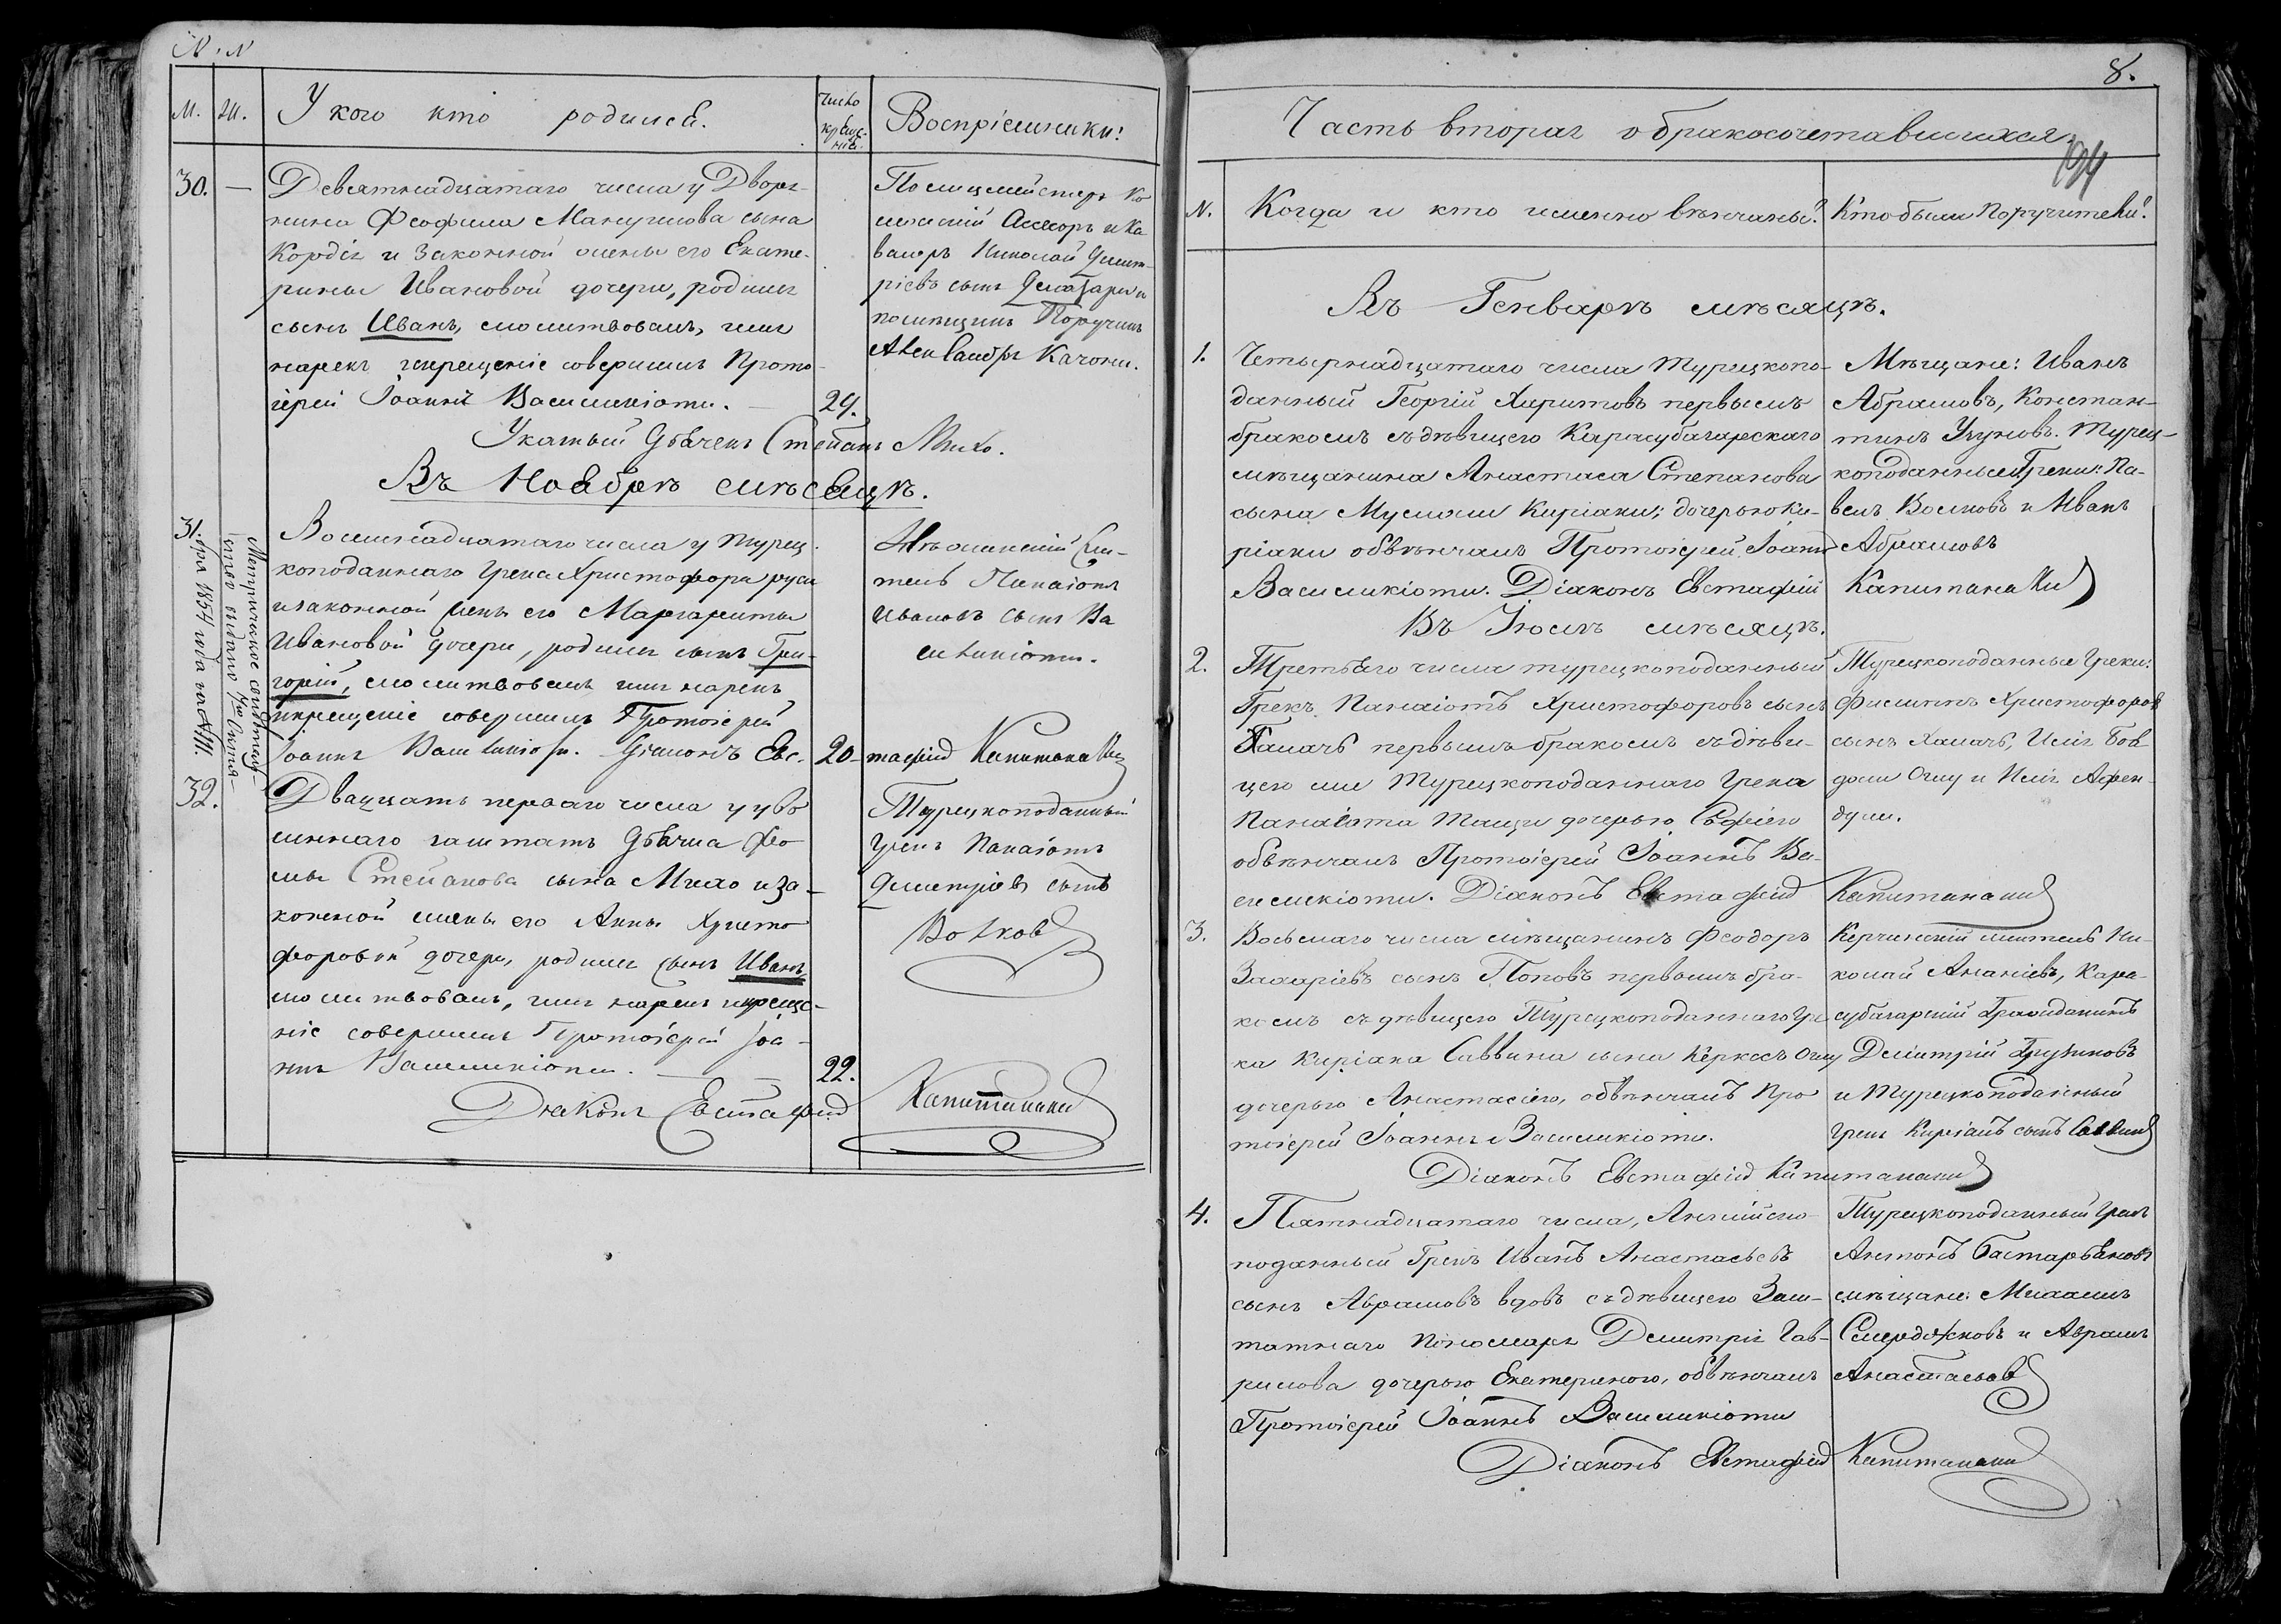 N. N
М. Ж. У кого кто родился. Число крѣще- нія. Воспріемники:
30. — Девятнадцатаго числа у Дворя-
нина Феофила Мануилова сына
Кордія и законной жены его Екате-
рины Ивановой дочери, родился
сынъ Иванъ, молитвовалъ, имя
нарекъ икрещеніе совершилъ Прото-
іерей Іоаннъ Василикіоти. — 29.
Полицмейстеръ Ко
лежскій Асесоръ и Ка
валеръ Николай Димит-
ріевъ сынъ
помѣщикъ Поручикъ
Александръ Качони.
Указный Дьячекъ Стефанъ Михо.
Въ Ноябрѣ мѣсяцѣ.
31. Восемнадцатаго числа у турец
коподаннаго Грека Христофора
изаконной жены его Маргариты
Ивановой дочери, родился сынъ Гри-
горій, молитвовалъ имя нарекъ
икрещеніе совершилъ Протоіерей
Іоаннъ Василикіоти. Діаконъ Евс- 20 тафій Капитанаки
Нѣжинскій Жи-
тель Панаіотъ
Ивановъ сынъ Ва
силикіоти.
Метрическое свидѣтель-
ство выдано
1854 года за №
32. Двадцать перваго числа у уво
леннаго заштатъ Дьячка Фо
мы Стефанова сына Михо иза-
конной жены его Анны Христо
форовой дочери, родился сынъ Иванъ,
молитвовалъ, имя нарекъ икреще-
ніе совершилъ Протоіерей Іоа-
ннъ Василикіоти. — 22.
Турецкоподанный
Грекъ Панаіотъ
Димитріевъ сынъ
Волковъ
Діаконъ Евстафій Капитанаки
8.
194
Часть вторая о бракосочетавшихся.
N. Когда и кто именно вѣнчаны? Кто были Поручители?
Въ Генварѣ мѣсяцѣ.
1. Четырнадцатаго числа Турецкопо-
данный Георгій Харитовъ первымъ
бракомъ съдѣвицею Карасубазарскаго
мѣщанина Анастаса Степанова
сына Мусмали Киріаки; дочерью Ки-
ріаки обвѣнчалъ Протоіерей Іоаннъ
Василикіоти. Діаконъ Евстафій Капитанаки
Мѣщане: Иванъ
Абрамовъ, Констан-
тинъ Узуновъ. Турец-
коподанные Греки: Па-
велъ Волковъ и Иванъ
Абрамовъ
Въ Іюлѣ мѣсяцѣ.
2. Третьяго числа турецкоподанный
Грекъ Панаіотъ Христофоровъ сынъ
Хамачъ первымъ бракомъ съдѣви-
цею Турецкоподаннаго Грека
Панаіота Танци дочерью Софіею
обвѣнчалъ Протоіерей Іоаннъ Ва-
силикіоти. Діаконъ Евстафій Капитанаки
Турецкоподанные Греки:
Филиппъ Христофоровъ
сынъ Хамачъ, Илія
Оглу и Илія Афен-
дули.
3. Восьмаго числа мѣщанинъ Феодоръ
Захаріевъ сынъ Поповъ первымъ бра-
комъ съ дѣвицею Турецкоподаннаго Гре
ка Киріака Саввина сына Керкесъ Оглу
дочерью Анастасіею, обвѣнчалъ Про
тоіерей Іоаннъ Василикіоти.
Керчинскій житель Ни-
колай Ананіевъ, Кара-
субазарскій Гражданинъ
Димитрій Грузиновъ
и Турецкоподанный
Грекъ Киріакъ сынъ Саввинъ
Діаконъ Евстафій Капитанаки
4. Пятнадцатаго числа, Англійско-
поданный Грекъ Иванъ Анастасьевъ
сынъ Аврамовъ вдовъ съдѣвицею Заш-
татнаго пономаря Димитрія Гав-
рилова дочерью Екатериною, обвѣнчалъ
Протоіерей Іоаннъ Василикіоти
Турецкоподанный Грекъ
Антонъ
мѣщане: Михаилъ
Семерджіовъ и Аврамъ
Анастасьевъ
Діаконъ Евстафій Капитанаки